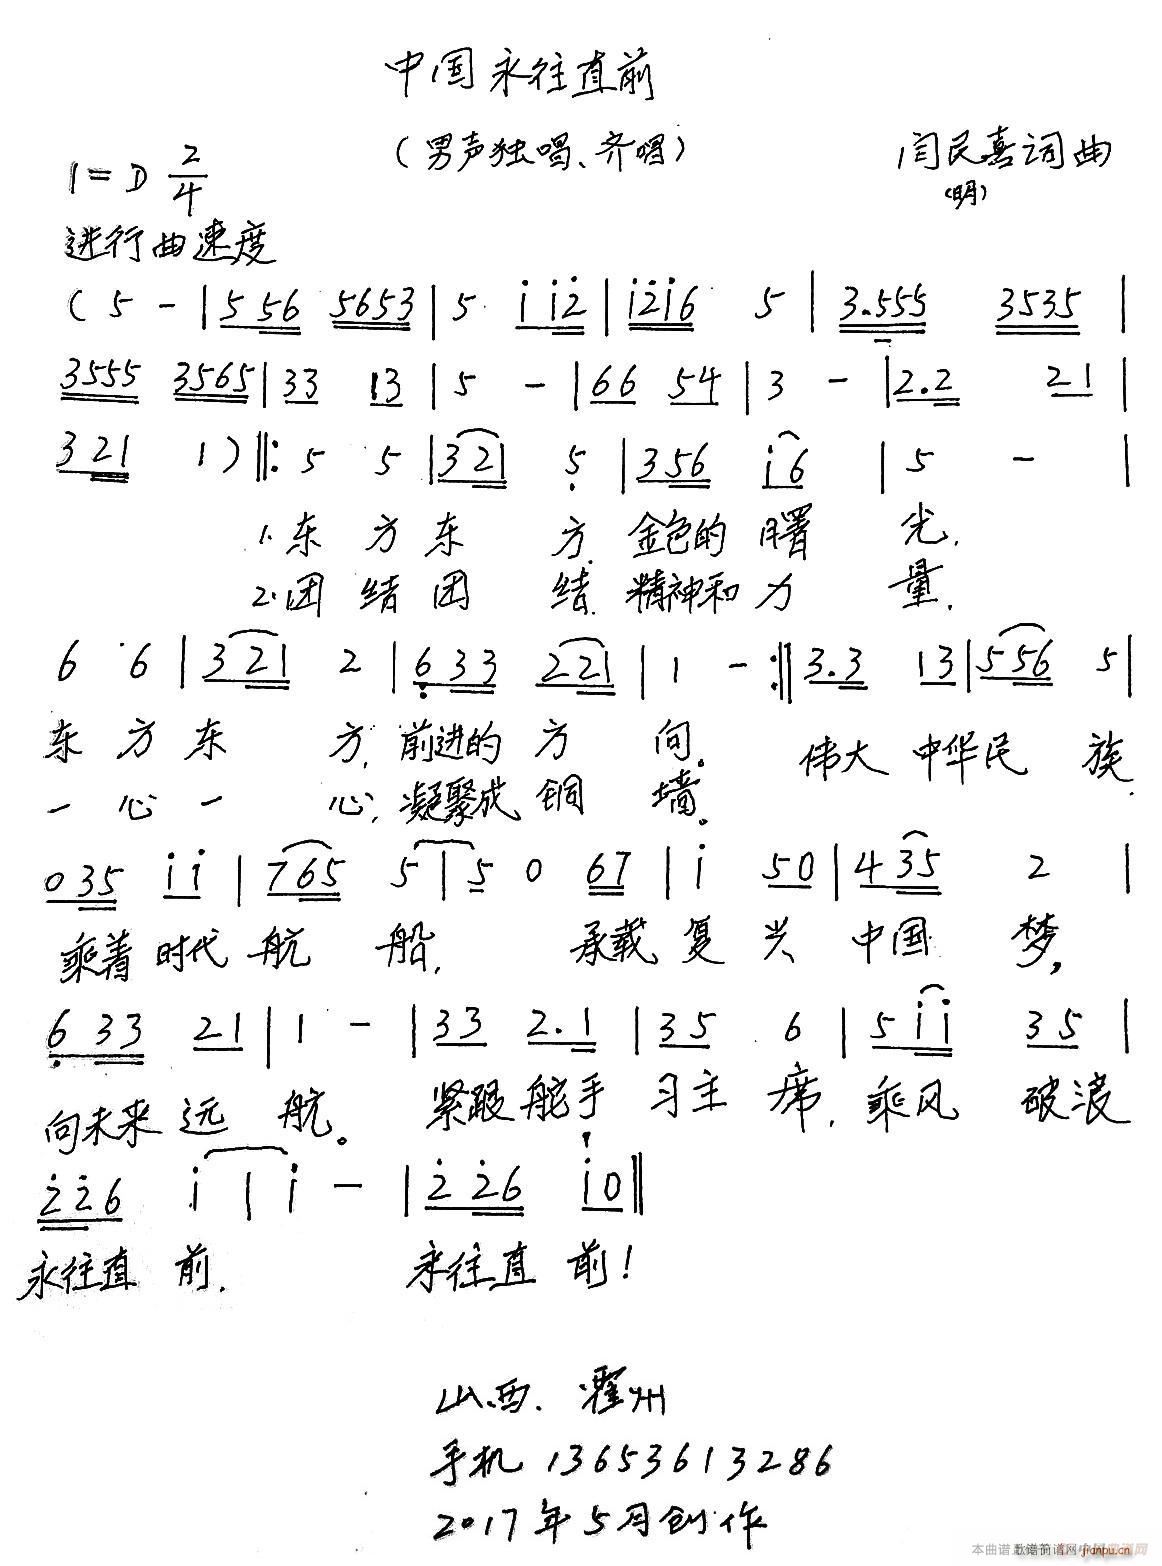 中国永往直前
(男声独唱、齐唱)
闫民喜词曲
(明)
1=D 2/4
进行曲速度
( 5 - | 5 56 5653 | 5 i i2 | i2i6 5 | 3.555 3535 |
3555 3565 | 33 13 | 5 - | 66 54 | 3 - | 2.2 21 |
3 21 1 ) ‖: 5 5 | 3 21 5 | 3 56 i6 | 5 - |
1.东方东方,金色的曙光,
2.团结团结,精神和力量,
6 6 | 3 21 2 | 6 33 2 21 | 1 - :‖ 3.3 13 | 5 56 5 |
东方东方,前进的方向。 伟大中华民族,
一心一心,凝聚成铜墙。
0 35 i i | 7 65 5 | 5 0 67 | i 50 | 4 35 2 |
乘着时代航船, 承载复兴中国梦,
6 33 21 | 1 - | 33 2.1 | 35 6 | 5 i i 35 |
向未来远航。 紧跟舵手习主席,乘风破浪
2 2 6 i | i - | 2 26 i0 ‖
永往直前, 永往直前!
山西.霍州
手机 13653613286
2017年5月创作
本曲谱上载于 简谱网
jianpu.cn